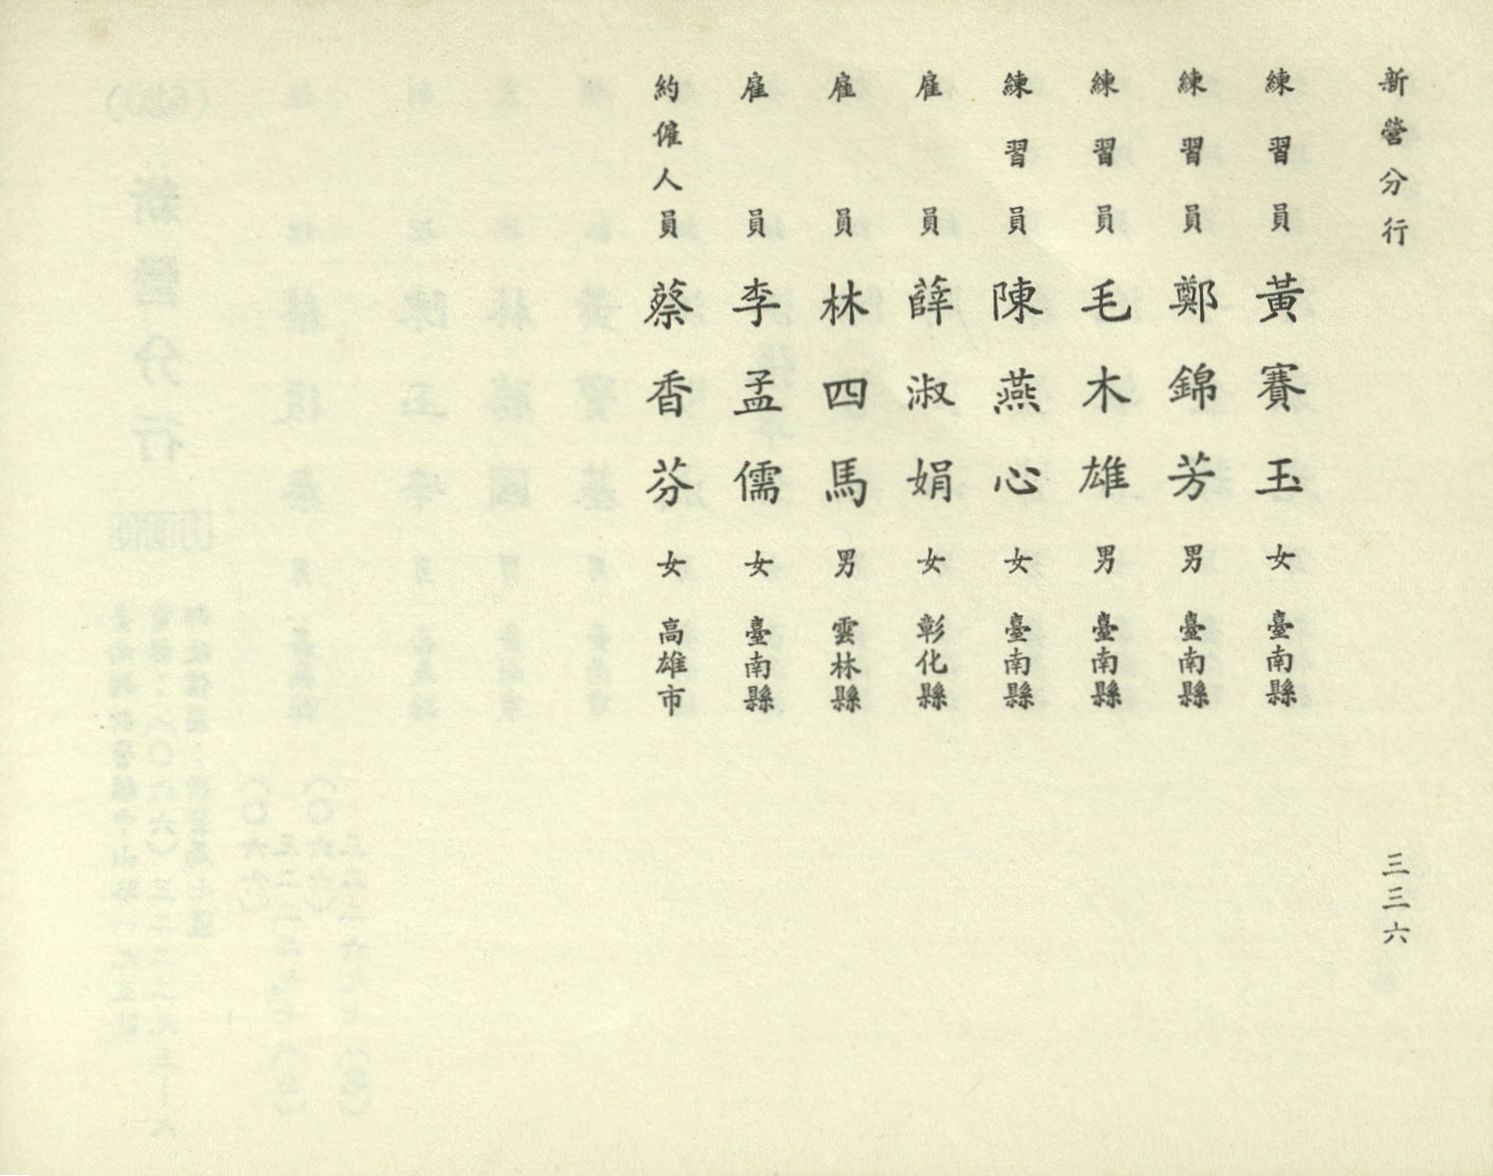 新營分行
三三六
練習員 黃賽玉 女 臺南縣
練習員 鄭錦芳 男 臺南縣
練習員 毛木雄 男 臺南縣
練習員 陳燕心 女 臺南縣
雇員 薛淑娟 女 彰化縣
雇員 林四馬 男 雲林縣
雇員 李孟儒 女 臺南縣
約僱人員 蔡香芬 女 高雄市